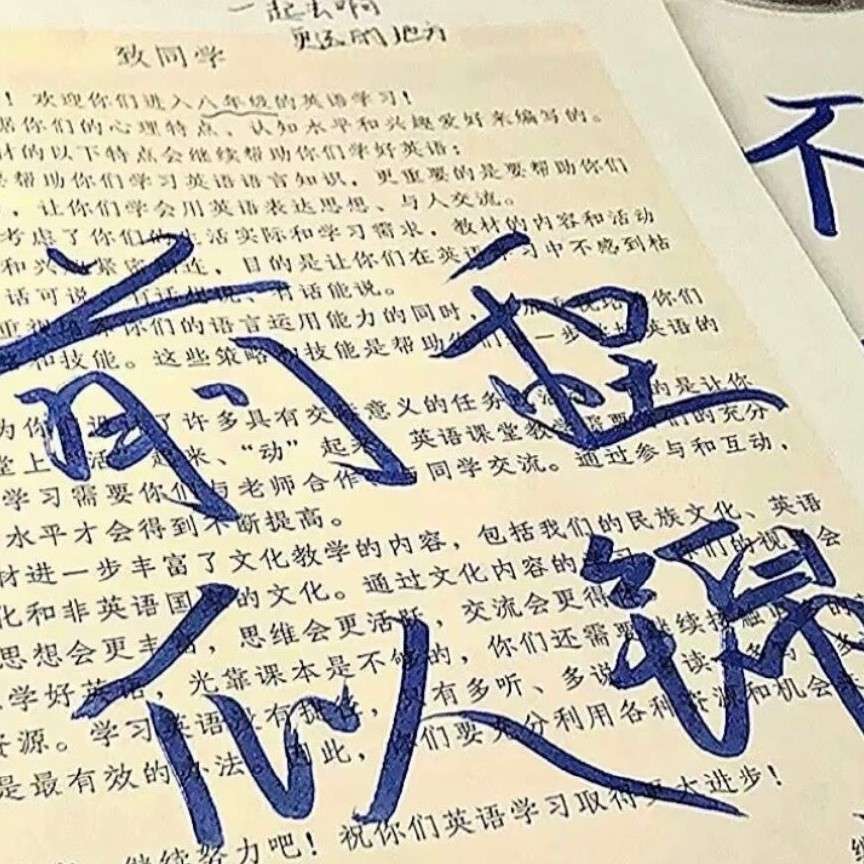 一起去啊
更远的地方
致同学
！欢迎你们进入八年级的英语学习！
据你们的心理特点、认知水平和兴趣爱好来编写的。
材的以下特点会继续帮助你们学好英语：
要帮助你们学习英语语言知识，更重要的是要帮助你们
，让你们学会用英语表达思想、与人交流。
考虑了你们的生活实际和学习需求，教材的内容和活动
和兴趣紧密相连，目的是让你们在英语学习中不感到枯
话可说、有话想说、有话能说。
你们的语言运用能力的同时，你们
和技能。这些策略和技能是帮助你们进一步英语的
为你们设计了许多具有交际意义的任务的是让你
堂上“活”起来、“动”起来。英语课堂教学需要你们的充分
学习需要你们与老师合作，与同学交流。通过参与和互动，
水平才会得到不断提高。
材进一步丰富了文化教学的内容，包括我们的民族文化、英语
化和非英语国家的文化。通过文化内容的你们的视野会
思想会更丰富，思维会更活跃，交流会更得
学好英语，光靠课本是不够的，你们还需要继续接触
资源。学习英语没有捷径，只有多听、多说、多读
是最有效的办法。因此，你们要充分利用各种资源和机会
继续努力吧！祝你们英语学习取得更大进步！
前程
似锦
不